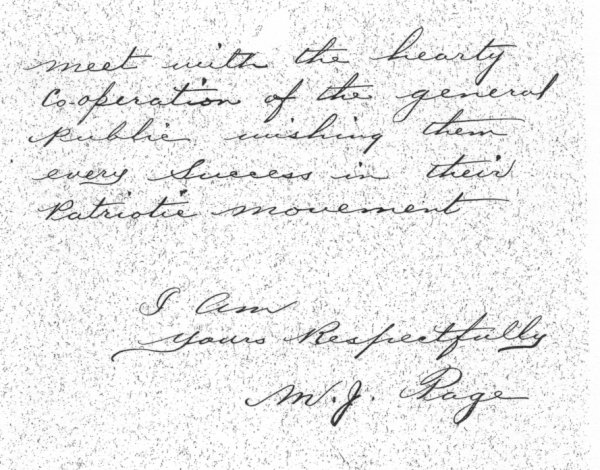 meet with the hearty
Co-operation of the general
public wishing them
every Success in their
Patriotic movement
I Am
Yours Respectfully
M. J. Page